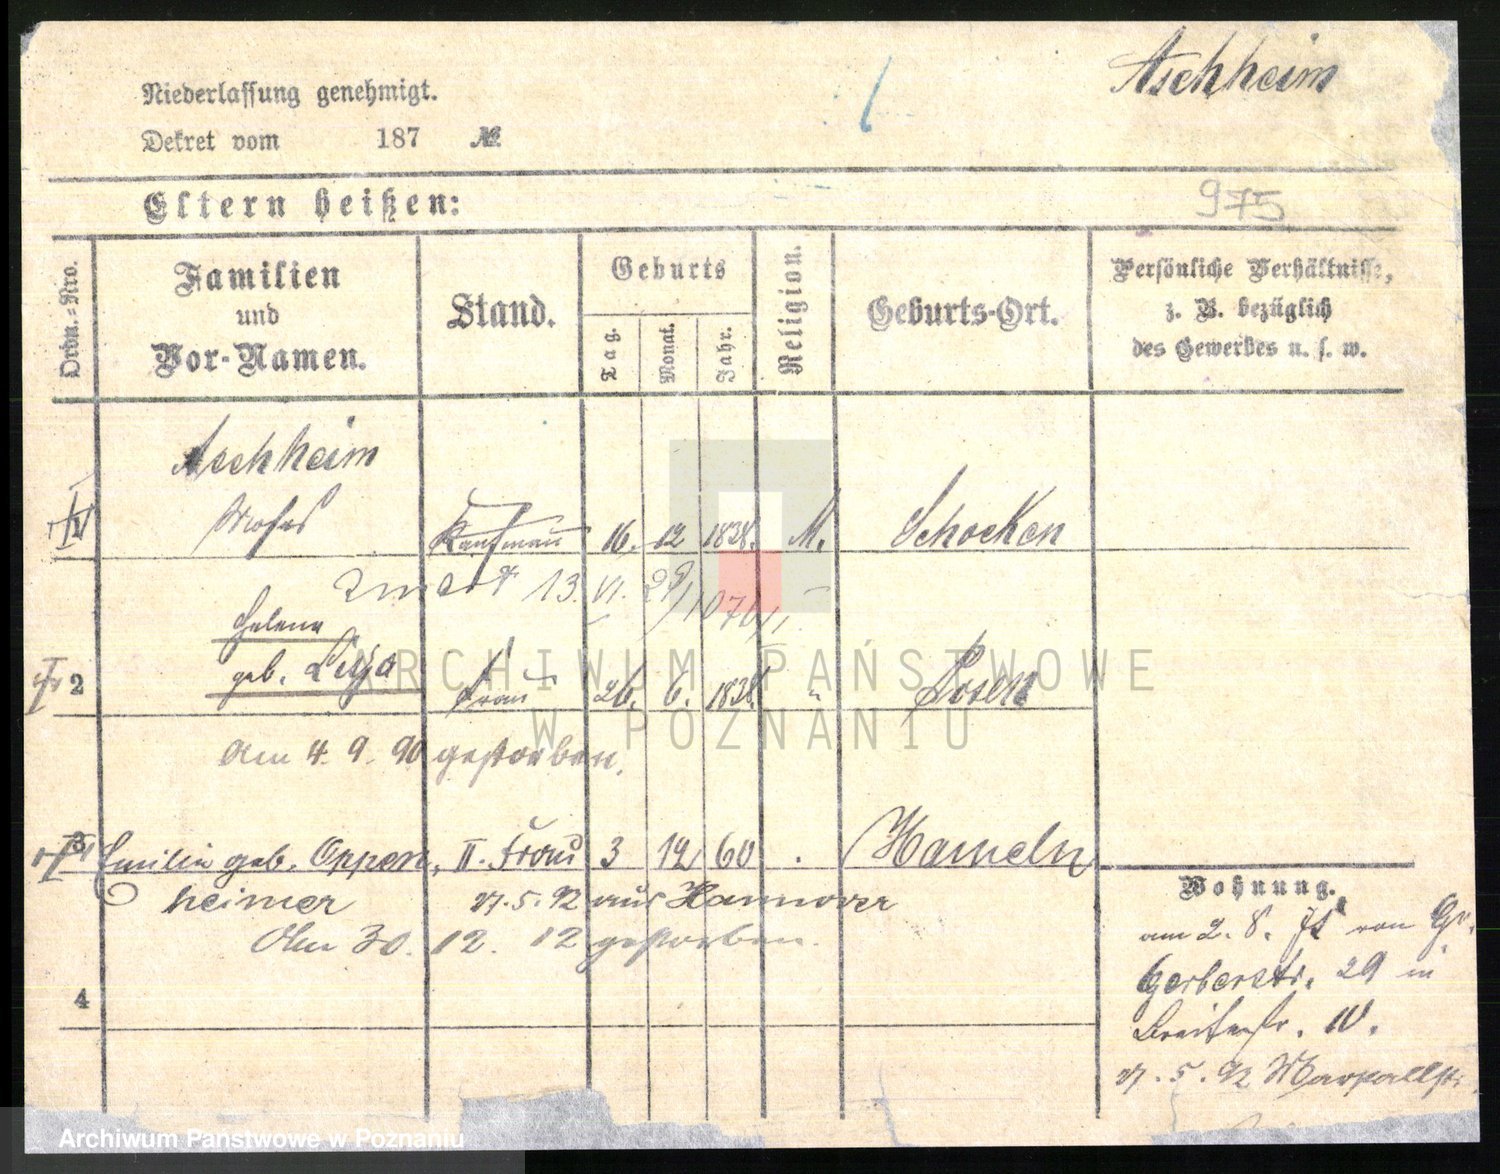 Aschheim
Niederlassung genehmigt.
Dekret vom 187 №
Eltern heißen:
975
Ordn.-Nro.
Familien
und
Vor-Namen.
Stand.
Geburts
Tag.
Monat.
Jahr.
Religion.
Geburts-Ort.
Persönliche Verhältnisse,
z. B. bezüglich
des Gewerbes u. s. w.
Aschheim
1 Moses Kaufmann 16. 12 1838. M. Schocken
zmarł 13. VI. 29
Helene
2 geb. Frau 26. 6. 1838. " Posen
am 4. 9. 90 gestorben.
3 Emilie geb. Oppen- II. Frau 3 12 60 . Hameln
heimer 27. 5. 92 aus Hannover
Am 30. 12. 12 gestorben.
4
Wohnung.
am 2. 8. von Gr.
Gerberstr. 29 in
Breitestr. 10.
27. 5. 92
ARCHIWUM PAŃSTWOWE
W POZNANIU
Archiwum Państwowe w Poznaniu